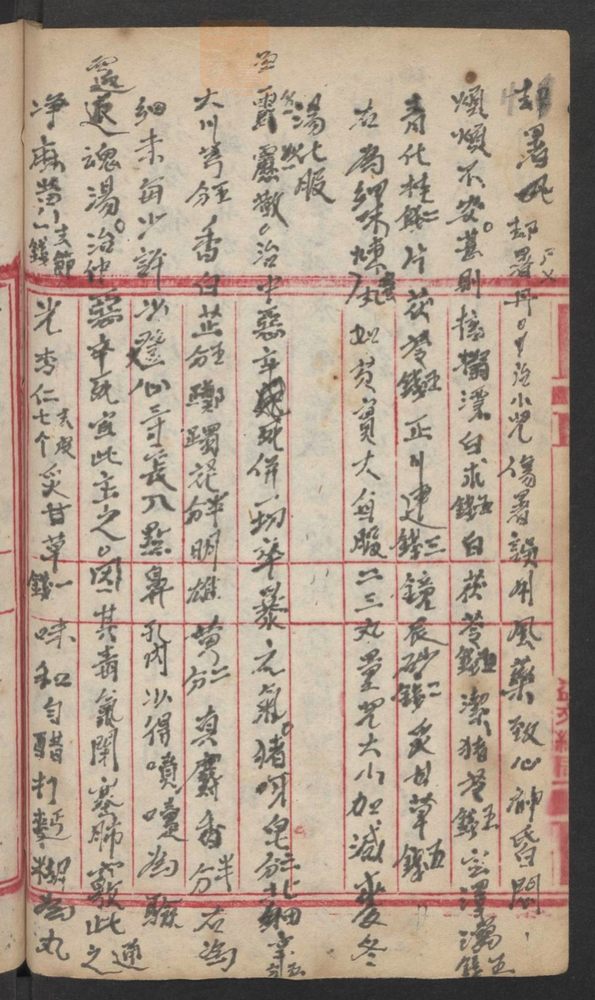 却暑丹。治小児傷暑誤用風藥致心神昏悶
煩燥不安。甚則搐搦漂白朮錢五白茯苓錢五潔猪苓錢五宣澤瀉錢五
青化桂錢二片茯苓錢五正川連錢三鏡辰砂錢二炙甘草錢五
右為細末煉蜜丸如芡實大每服二三丸量児大小加減麥冬
湯化服
霹靂散。治中惡卒死併一切卒暴之氣。猪牙皂分 北細辛分五
大川芎分五香白芷分五躑躅花分半明雄黃分二真麝香分半右為
細末每少許以燈心三寸長入點鼻孔內以得噴嚏為驗
還魂湯。治仲惡卒死宜此主之。因其毒氣閉塞肺竅此之通
淨麻黃去節一錢光杏仁七个去皮炙甘草一錢 味和勻醋打麪糊為丸